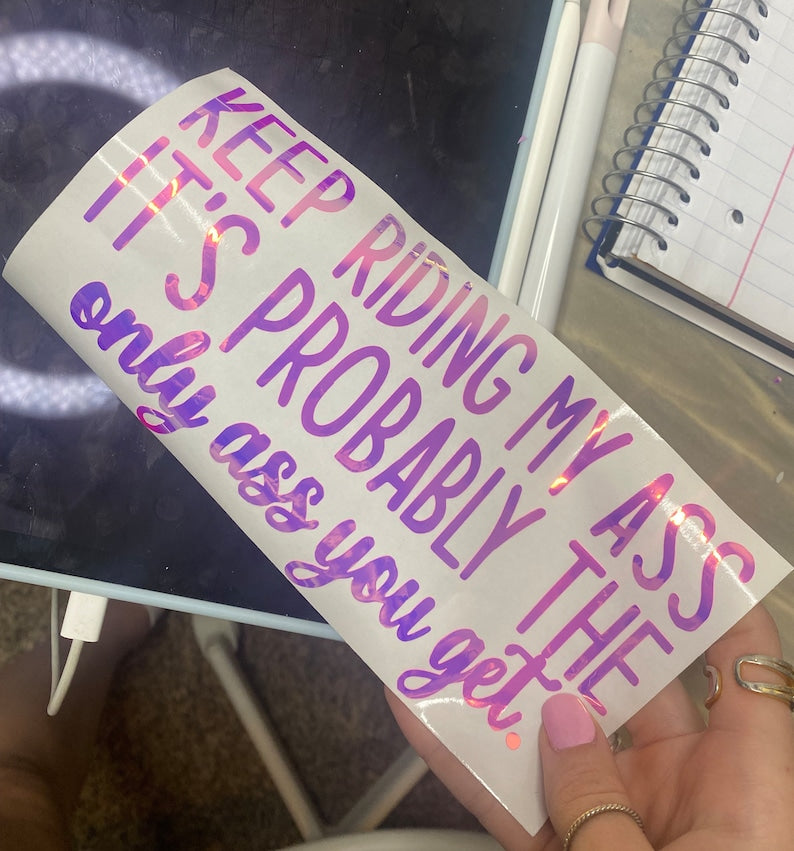 KEEP RIDING MY ASS
IT'S PROBABLY THE
only ass you get.